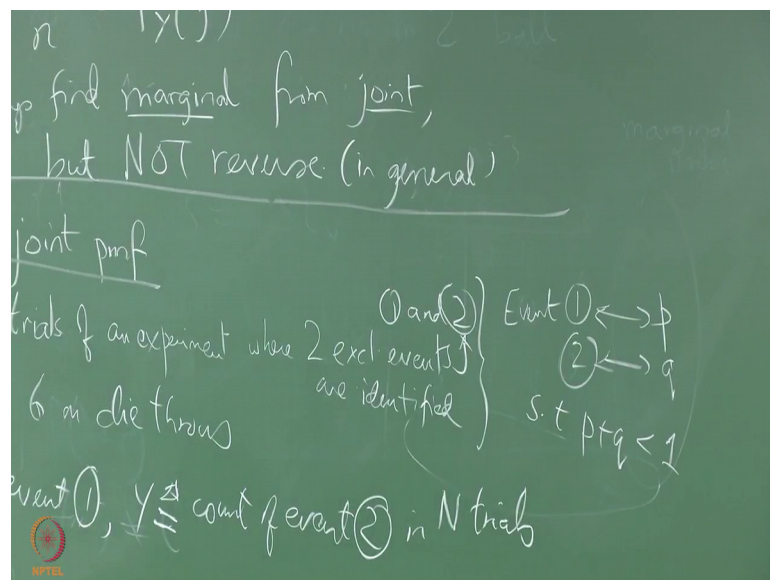 n Y( )
find marginal from joint,
but NOT reverse (in general)
joint pmf
trials of an experiment where 2 excl. events
① and ②
are identified
Event ① ↔ p
② ↔ q
s.t p+q < 1
6 on die throws
event ①, Y ≜ count of event ② in N trials
marginal
NPTEL